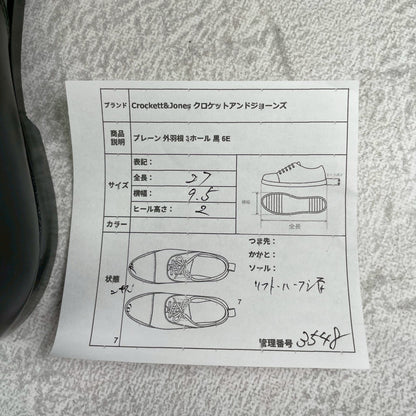 ブランド Crockett&Jones クロケットアンドジョーンズ
商品説明 プレーン 外羽根 3ホール 黒 6E
サイズ
表記：
全長： 27
横幅： 9.5
ヒール高さ： 2
全長
カラー
状態
つま先：
かかと：
ソール：
7
7
管理番号 3548